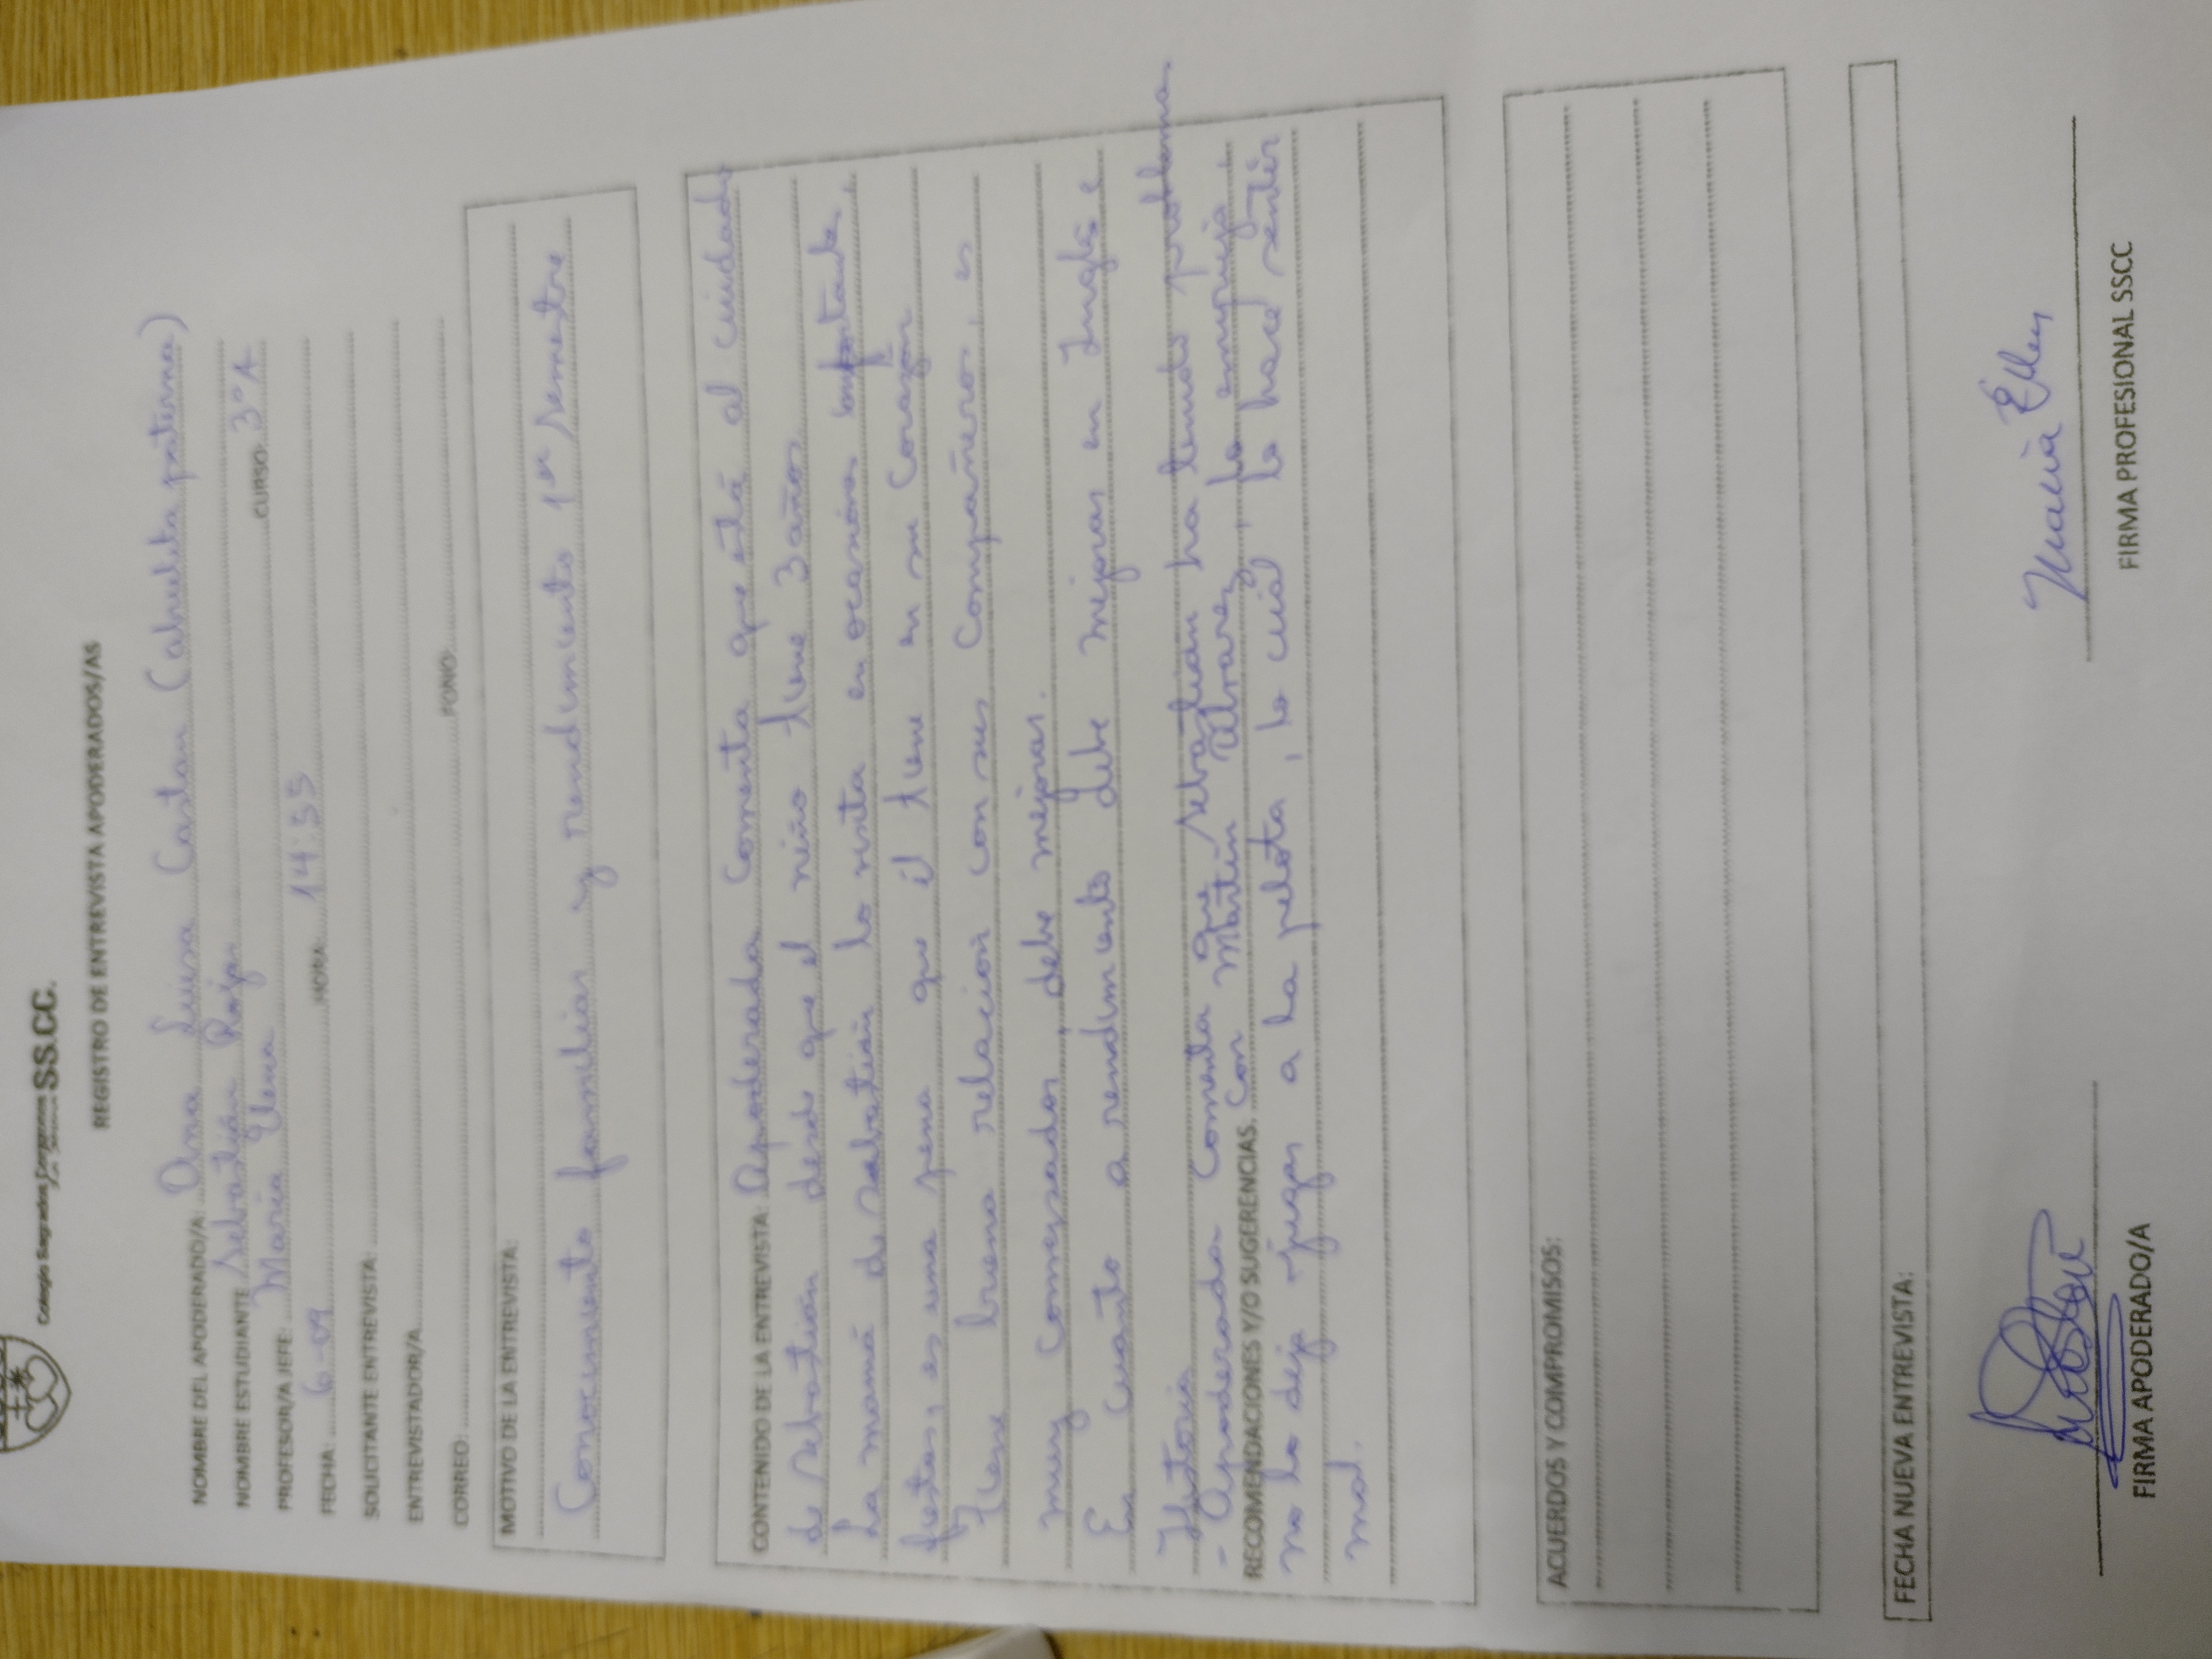 Colegio Sagrados Corazones SS.CC.
REGISTRO DE ENTREVISTA APODERADOS/AS
NOMBRE DEL APODERADO/A: Ana Luisa Castan (abuelita paterna)
NOMBRE ESTUDIANTE Sebastián Rojas CURSO: 3°A
PROFESOR/A JEFE: María Elena
FECHA: 6-09 HORA: 14:35
SOLICITANTE ENTREVISTA:
ENTREVISTADOR/A
CORREO: FONO:
MOTIVO DE LA ENTREVISTA:
Conocimiento familiar y rendimiento 1er semestre
CONTENIDO DE LA ENTREVISTA: Apoderada comenta que está al cuidado
de Sebastián desde que el niño tiene 3 años.
La mamá de Sebastián lo visita en ocasiones importante,
fiestas, es una pena que él tiene en su corazón
Tiene buena relación con sus compañeros, es
muy conversador, debe mejorar.
En cuanto a rendimiento debe mejorar en Inglés e
Historia
- Apoderada comenta que Sebastián ha tenido problema
RECOMENDACIONES Y/O SUGERENCIAS: con Martín Alvarez, lo empuja,
no lo deja jugar a la pelota, lo cual lo hace sentir
mal.
ACUERDOS Y COMPROMISOS:
FECHA NUEVA ENTREVISTA:
María Elena
FIRMA APODERADO/A FIRMA PROFESIONAL SSCC